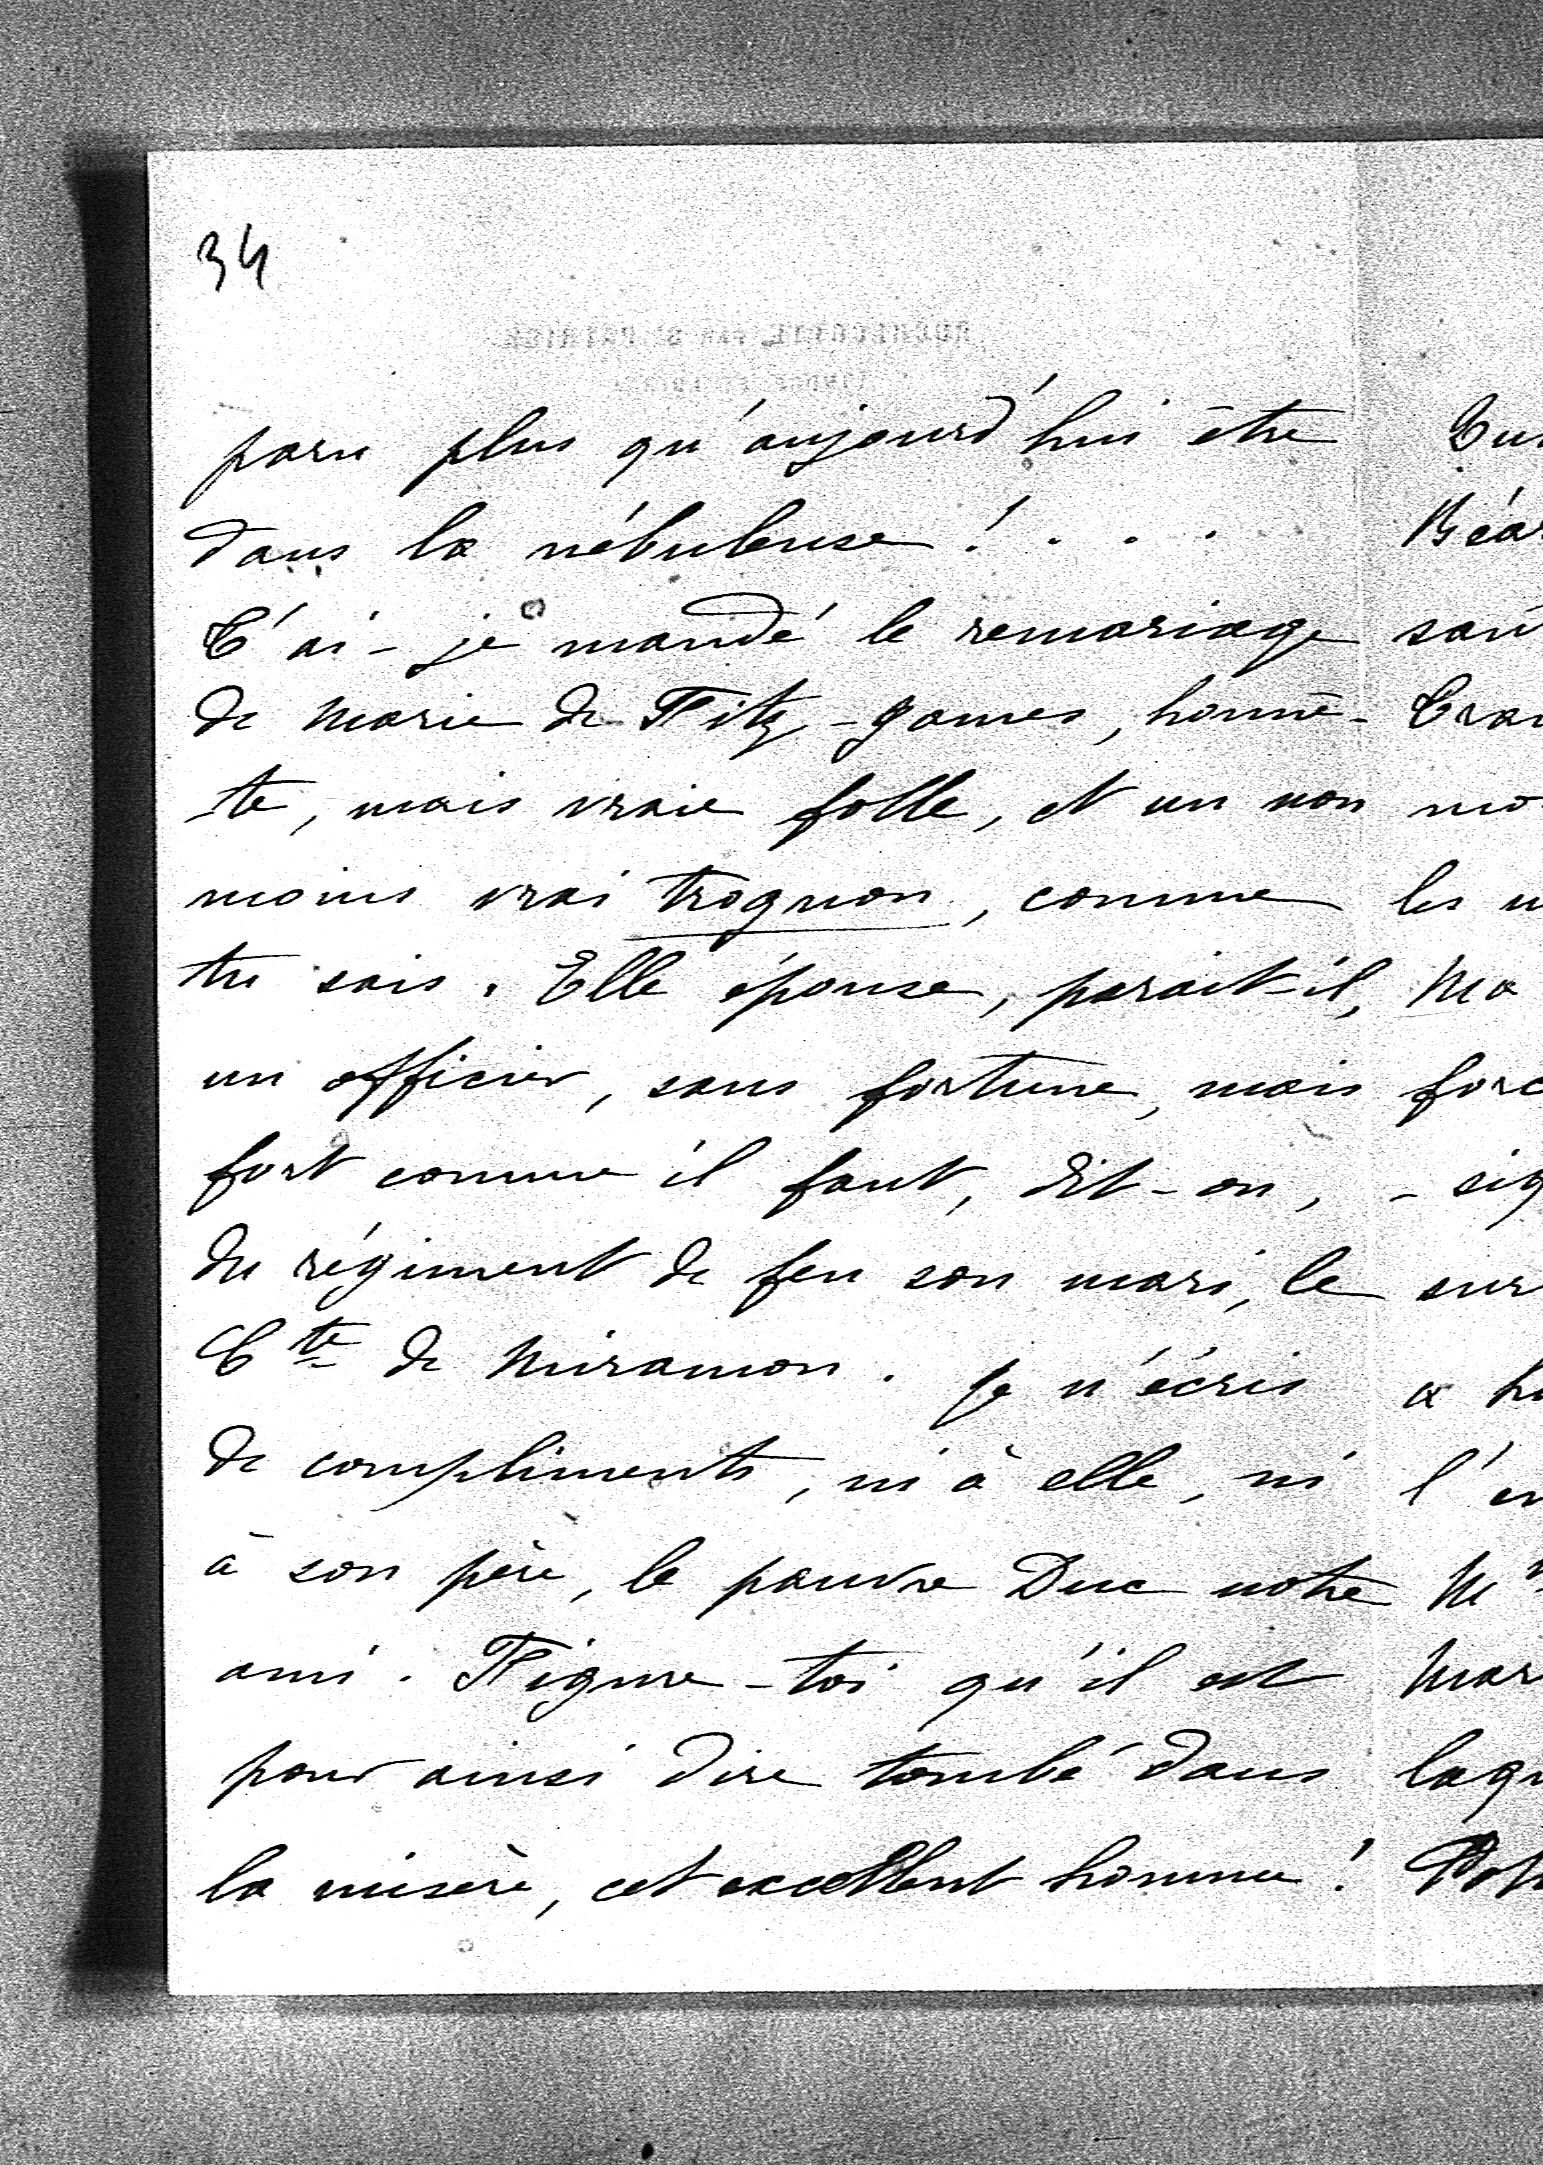 34
paru plus qu'aujourd'hui être
dans la nébuleuse ! . . .
T'ai-je mandé le remariage
de Marie de Fitz-James, honnê-
-te, mais vraie folle, et un non
moins vrai trognon, comme
tu sais. Elle épouse, parait-il,
un officier, sans fortune, mais
fort comme il faut, dit-on,
du régiment de feu son mari, le
Cte de Miramon. Je n'écris
de compliments, ni à elle, ni
à son père, le pauvre Duc notre
ami. Figure-toi qu'il est
pour ainsi dire tombé dans
la misère, cet excellent homme !